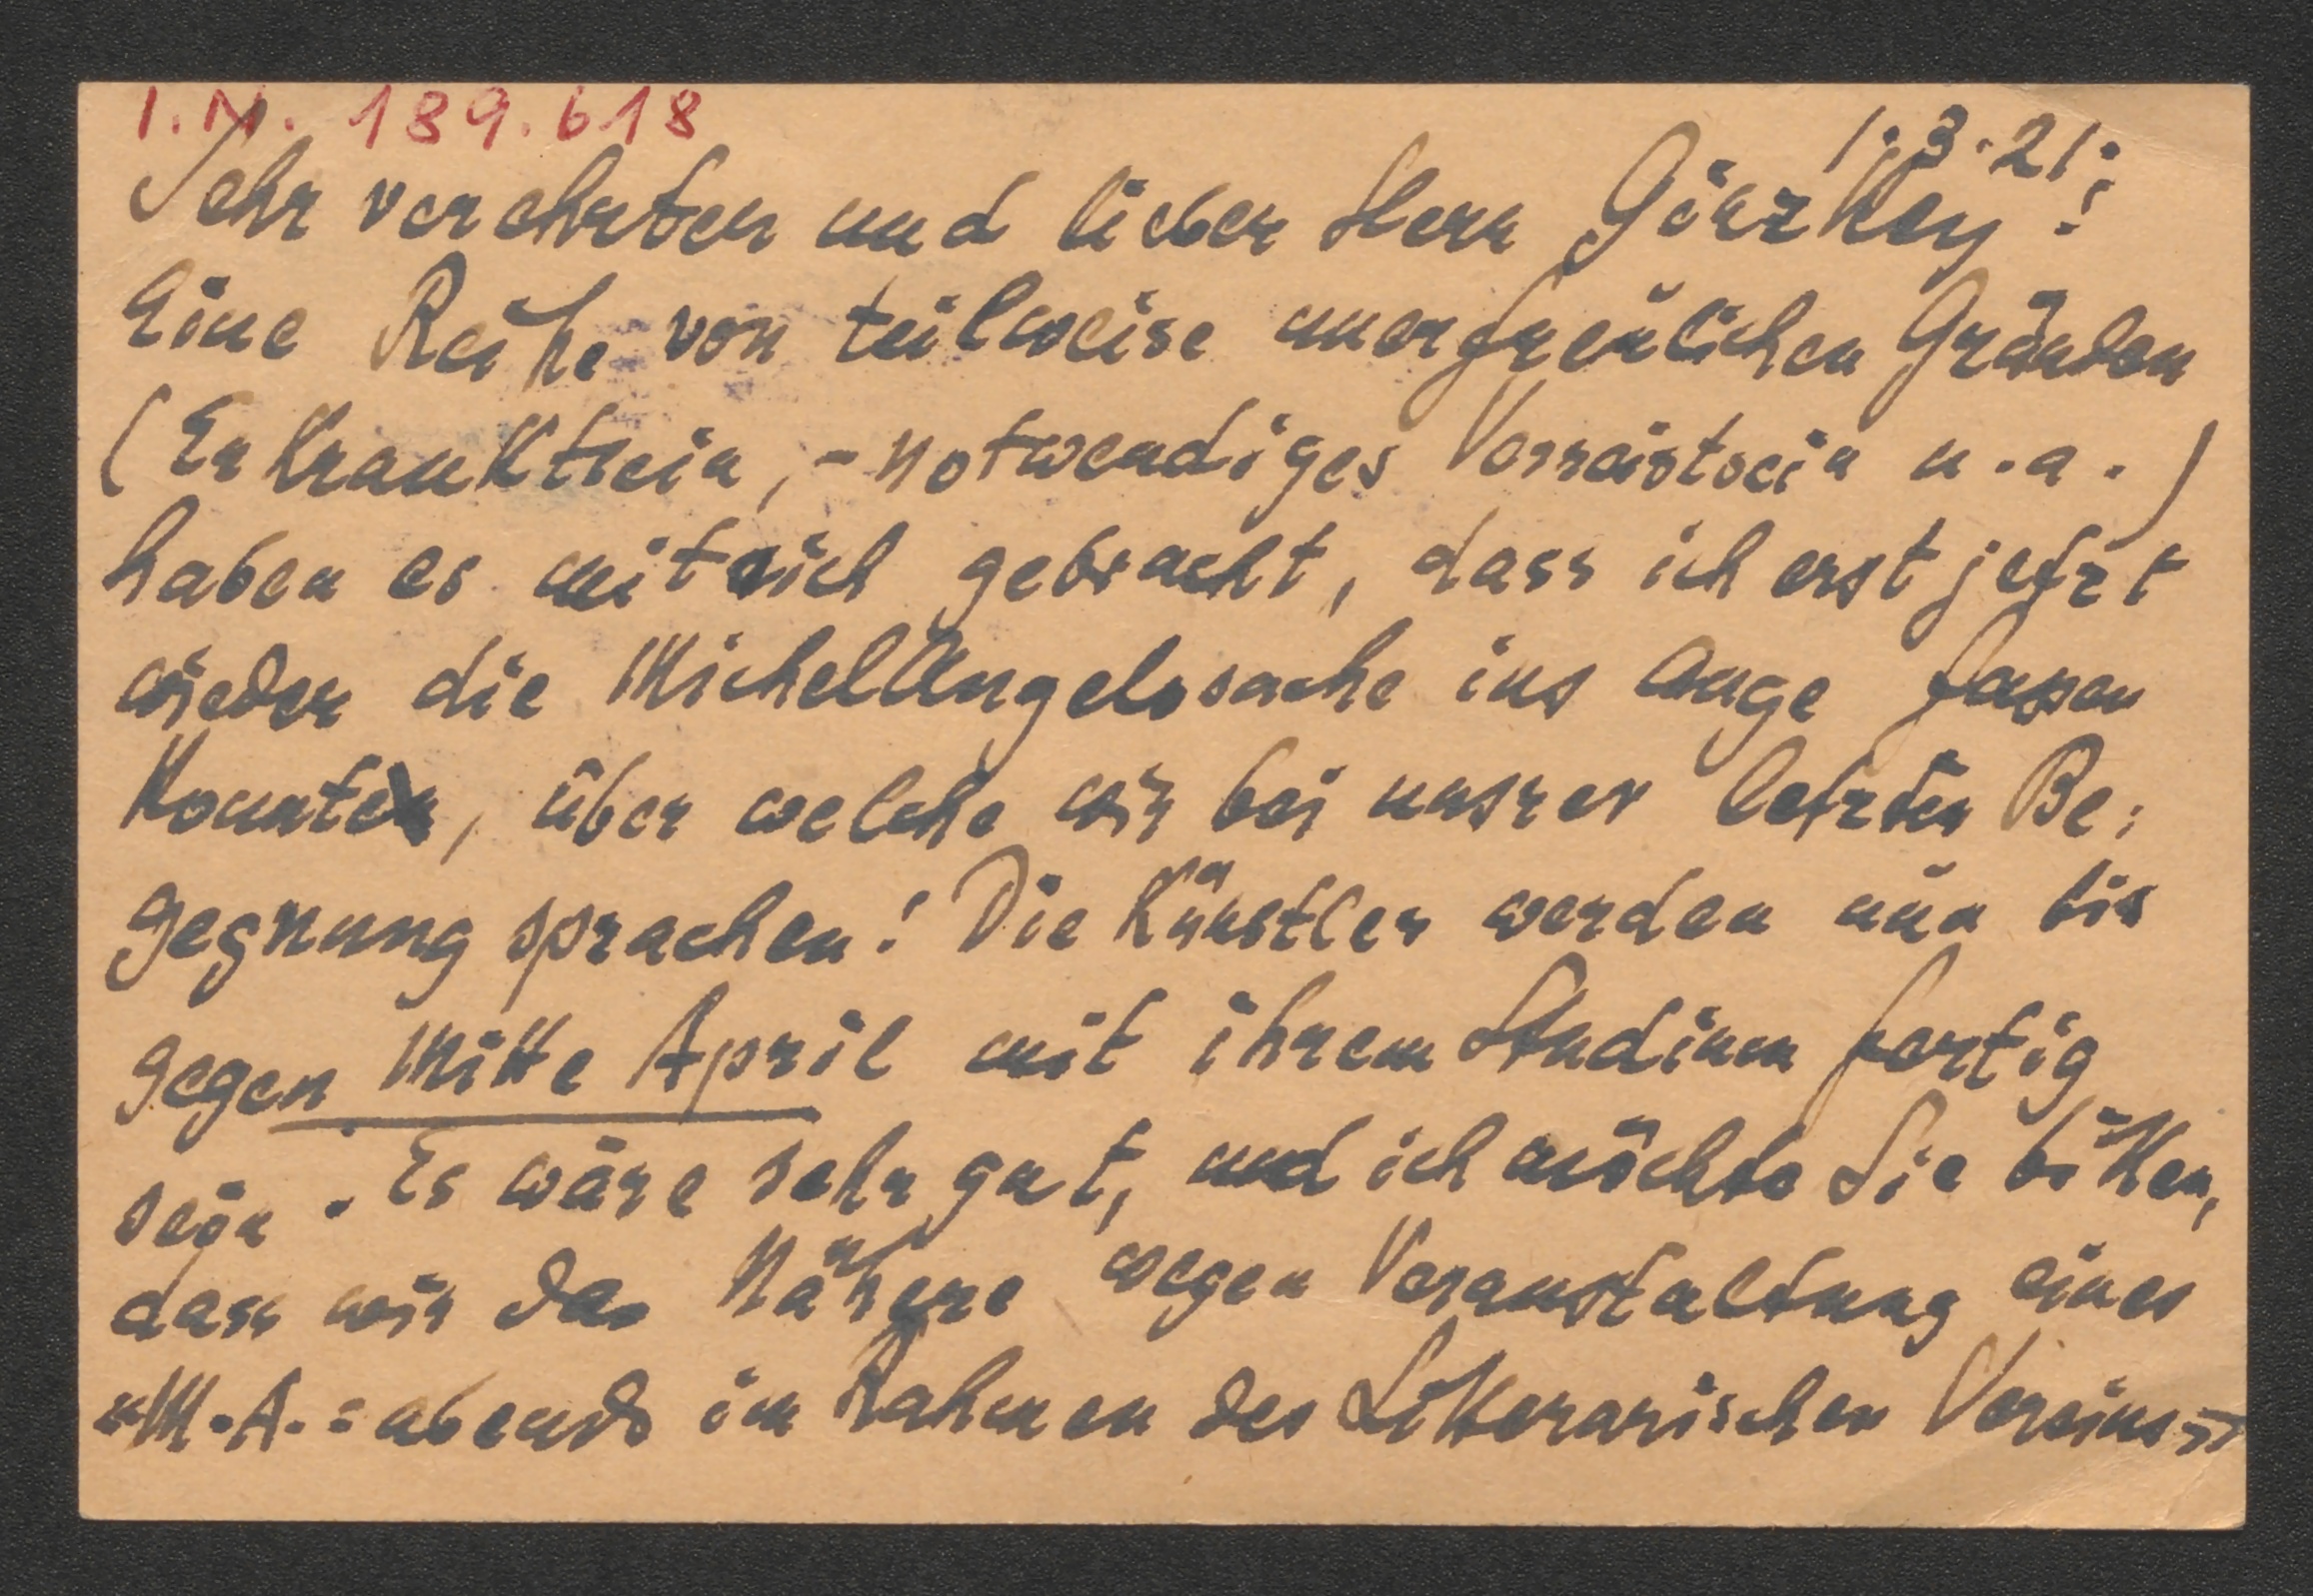 I.N. 189.618
1.3.21.
Sehr verehrter und lieber Herr Ginzkey!
Eine Reihe von teilweise unerfreulichen Gründen
(Erkranktsein,- notwendiges Verreistsein u.a.)
haben es mit sich gebracht, dass ich erst jetzt
wieder die MichelAngelosache ins Auge fassen
konnte, über welche wir bei unsrer letzten Be:
gegnung sprachen! Die Künstler werden nun bis
gegen Mitte April mit ihrem Studium fertig
sein. Es wäre sehr gut, und ich möchte Sie bitten,
dass wir das Nähere wegen Veranstaltung eines
"M.A.:abends im Rahmen des Litterarischen Vereins"